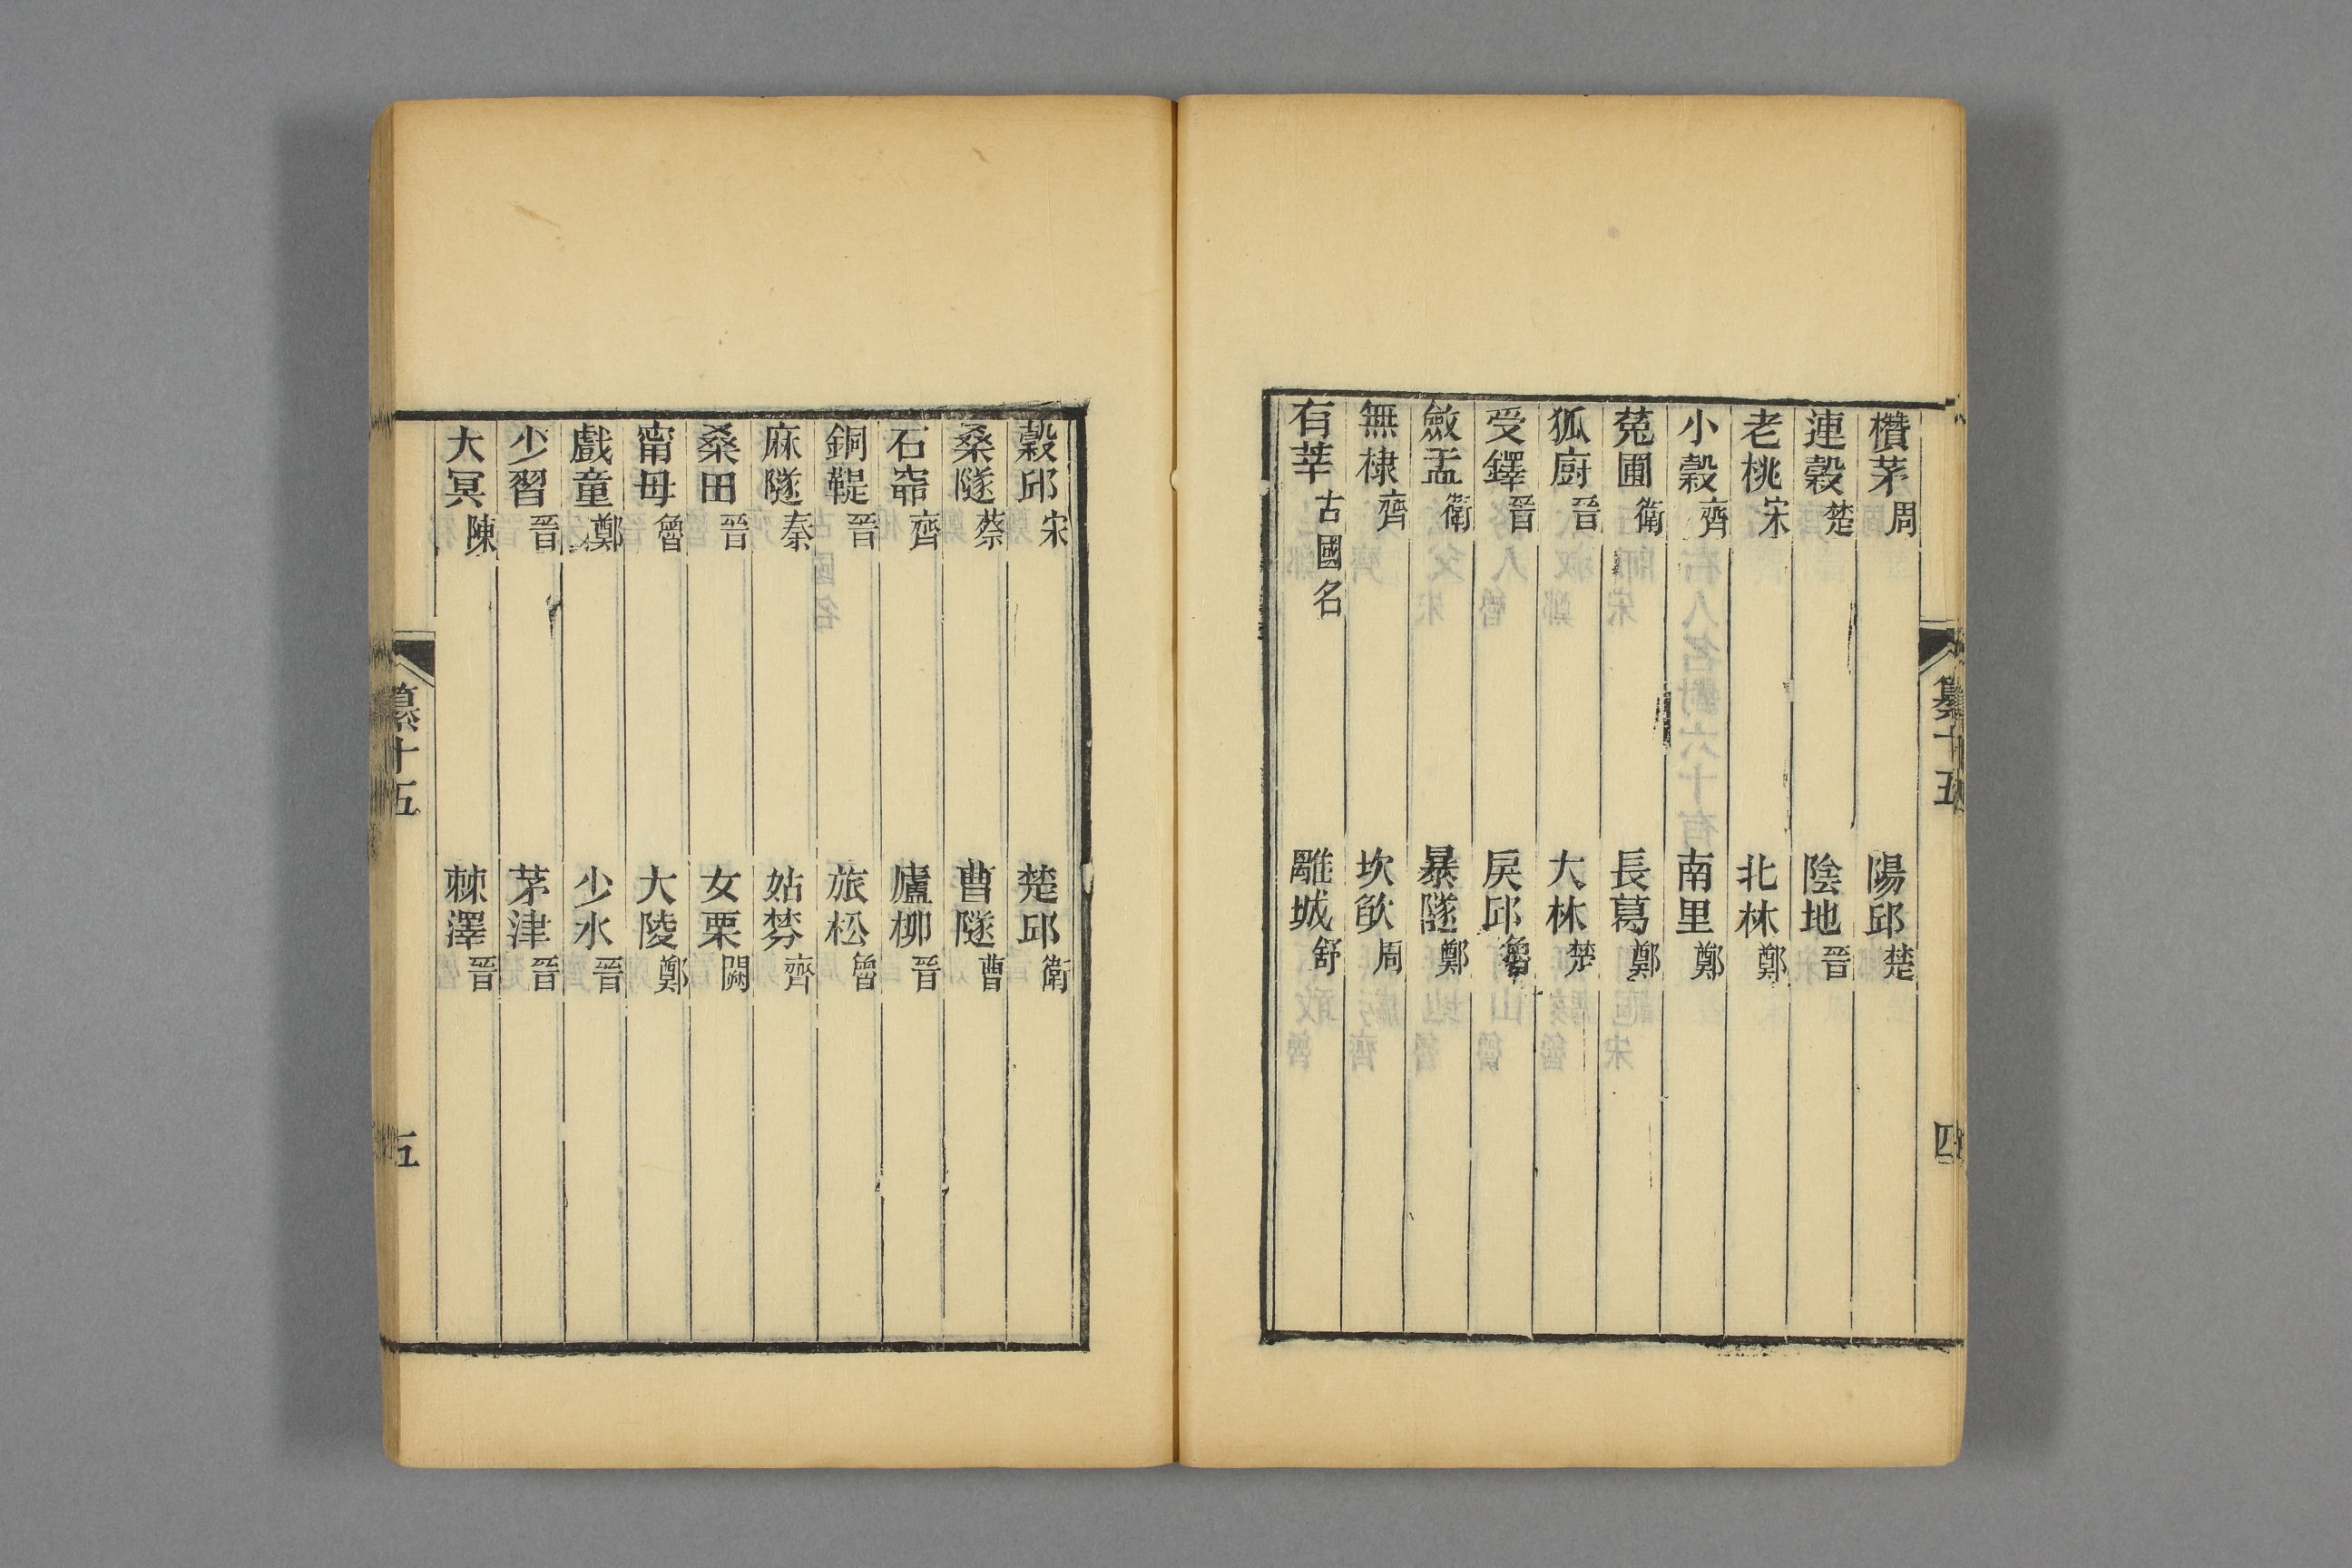 欑茅周　陽邱楚
連穀楚　陰地晉
老桃宋　北林鄭
小穀齊　南里鄭
菟圃衛　長葛鄭
狐廚晉　大林楚
受鐸晉　戾邱魯
斂盂衛　暴隧鄭
無棣齊　坎欿周
有莘古國名　離城舒
纂十五　四
穀邱宋　楚邱衛
桑隧蔡　曹隧曹
石窌齊　廬柳晉
銅鞮晉　旅松魯
麻隧秦　姑棼齊
桑田晉　女栗闕
甯母魯　大陵鄭
戲童鄭　少水晉
少習晉　茅津晉
大冥陳　棘澤晉
纂十五　五